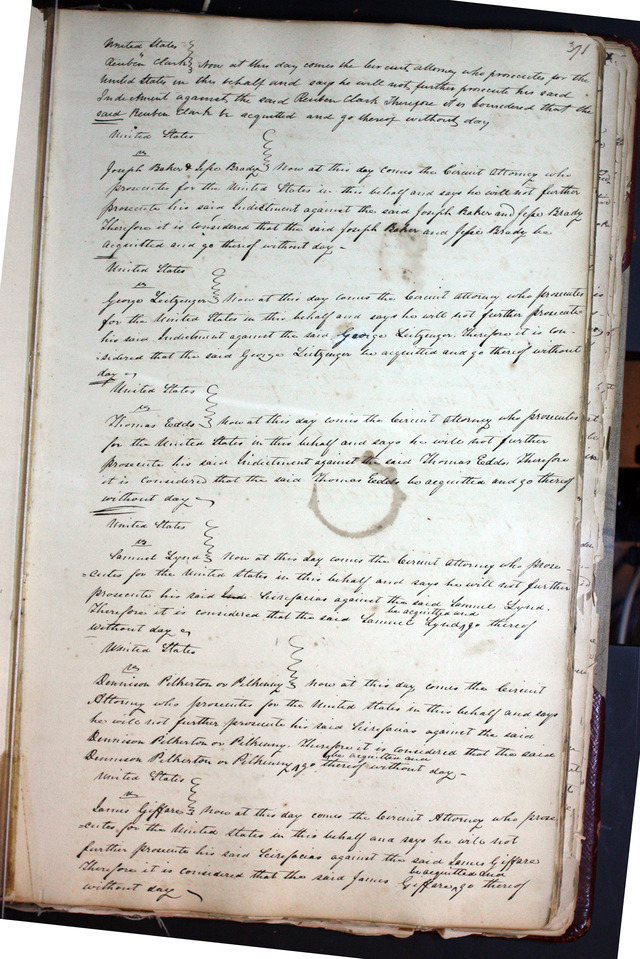 371
United States
vs
Reuben Clark Now at this day comes the Circuit attorney who prosecutes for the
United States in this behalf and say he will not further prosecute his said
Indictment against the said Reuben Clark Therefore it is considered that the
said Reuben Clark be acquitted and go thereof without day
United States
vs
Joseph Baker & Jesse Brady Now at this day comes the Circuit Attorney who
prosecutes for the United States in this behalf and says he will not further
prosecute his said Indictment against the said Joseph Baker and Jesse Brady
Therefore it is considered that the said Joseph Baker and Jesse Brady be
acquitted and go thereof without day –
United States
vs
George Leitzinger Now at this day comes the Circuit Attorney who prosecutes
for the United States in this behalf and says he will not further prosecute
his said Indictment against the said George Leitzinger. Therefore it is con-
isidered that the said George Leitzinger be acquitted and go thereof without
day
United States
vs
Thomas Eedds Now at this day comes the Circuit Attorney who prosecutes
for the United States in this behalf and says he will not further
prosecute his said Indictment against the said Thomas Eedds. Therefore
it is considered that the said Thomas Eedds be acquitted and go thereof
without day
United States
vs
Samuel Lynd Now at this day comes the Circuit Attorney who prose-
-cutes for the United States in this behalf and says he will not further
prosecute his said Ind Scirefacias against the said Samuel Lynd.
be acquitted and
Therefore it is considered that the said Samuel Lynd go thereof
without day
United States
vs
Dennison Pilkerton or Pilkenny Now at this day comes the Circuit
Attorney who prosecutes for the United States in this behalf and says
he will not further prosecute his said Scirefacias against the said
Dennison Pilkerton or Pilkenny. Therefore it is considered that the said
be acquitted and
Dennison Pilkerton or Pilkenny go thereof without day –
United States
vs
James Giffare Now at this day comes the Circuit Attorney who prose-
-cutes for the United States in this behalf and says he will not
further prosecute his said Scirefacias against the said James Giffare
be acquitted and
Therefore it is considered that the said James Giffare go thereof
without day